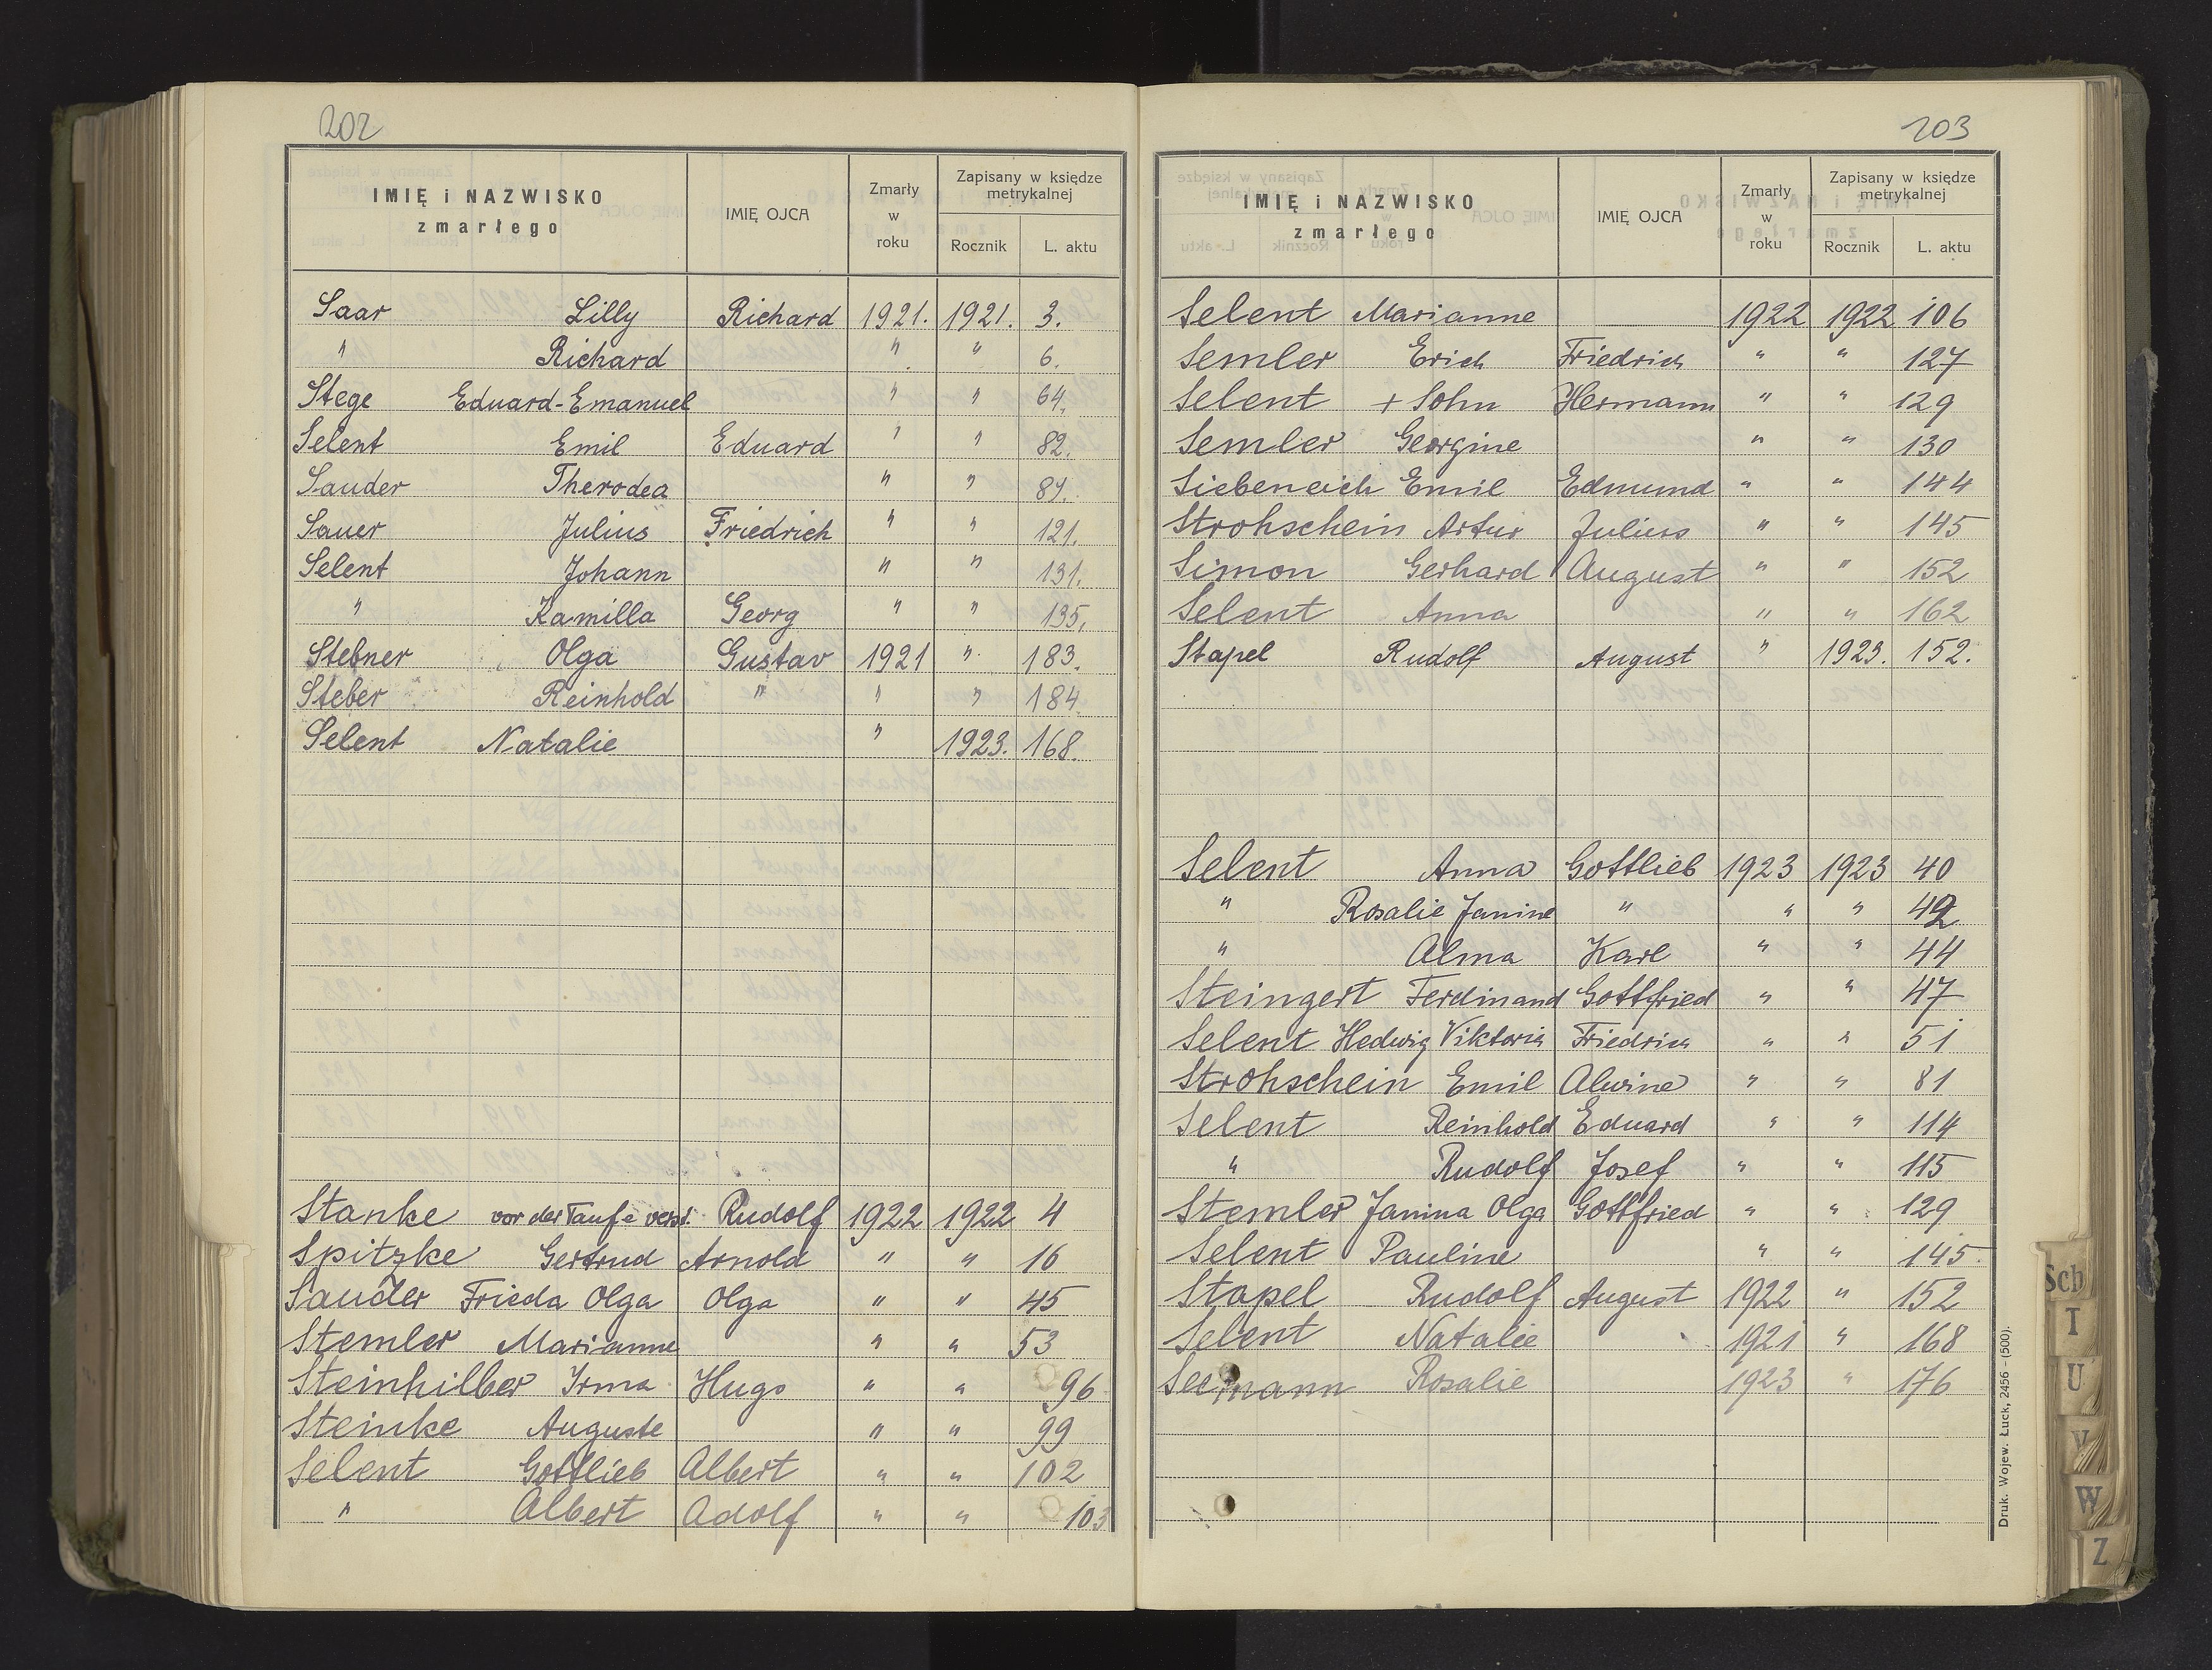 202
IMIĘ i NAZWISKO zmarłego IMIĘ OJCA Zmarły w roku Zapisany w księdze metrykalnej Rocznik L. aktu
Saar Lilly Richard 1921. 1921. 3.
" Richard " " 6.
Stege Eduard-Emanuel " " 64.
Selent Emil Eduard " " 82.
Sauder Therodea " " 87.
Sauer Julius Friedrich " " 121.
Selent Johann " " 131.
" Kamilla Georg " " 135.
Stebner Olga Gustav 1921 " 183.
Steber Reinhold " " " 184
Selent Natalie " 1923. 168.
Stanke vor der Taufe verst. Rudolf 1922 1922 4
Spitzke Gertrud Arnold " " 16
Sauder Frieda Olga Olga " " 45
Stemler Marianne " " 53
Steinhilber Irma Hugo " " 96
Steinke Auguste " " 99
Selent Gottlieb Albert " " 102
" Albert Adolf " " 103
203
IMIĘ i NAZWISKO zmarłego IMIĘ OJCA Zmarły w roku Zapisany w księdze metrykalnej Rocznik L. aktu
Selent Marianne 1922 1922 106
Semler Erich Friedrich " " 127
Selent + Sohn Hermann " " 129
Semler Georgine " " 130
Siebeneich Emil Edmund " " 144
Strohschein Artur Julius " " 145
Simon Gerhard August " " 152
Selent Anna " " 162
Stapel Rudolf August " 1923. 152.
Selent Anna Gottlieb 1923 1923 40
" Rosalie Janine " " " 42
" Alma Karl " " 44
Steingert Ferdinand Gottfried " " 47
Selent Hedwig Viktoria Friedrich " " 51
Strohschein Emil Alwine " " 81
Selent Reinhold Eduard " " 114
" Rudolf Josef " " 115
Stemler Janina Olga Gottfried " " 129
Selent Pauline " " 145.
Stapel Rudolf August 1922 " 152
Selent Natalie 1921 " 168
Seemann Rosalie 1923 " 176
Druk. Wojew. Łuck, 2456 – (500).
Sch
T
U
V
W
Z